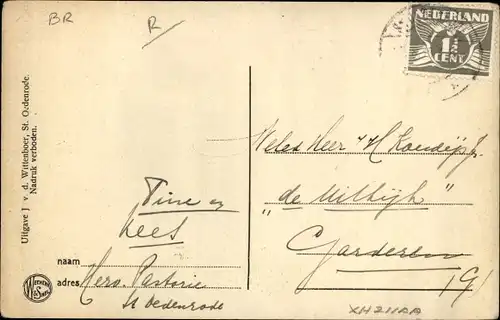 BR
R
NEDERLAND
1½
CENT
Uitgave J. v. d. Wittenboer, St. Oedenrode.
Nadruk verboden.
Weled. Heer H
"de Uitkijk"
Garderen
Tine en
Kees
naam
adres Herv. Pastorie
St Oedenrode
XH211AA